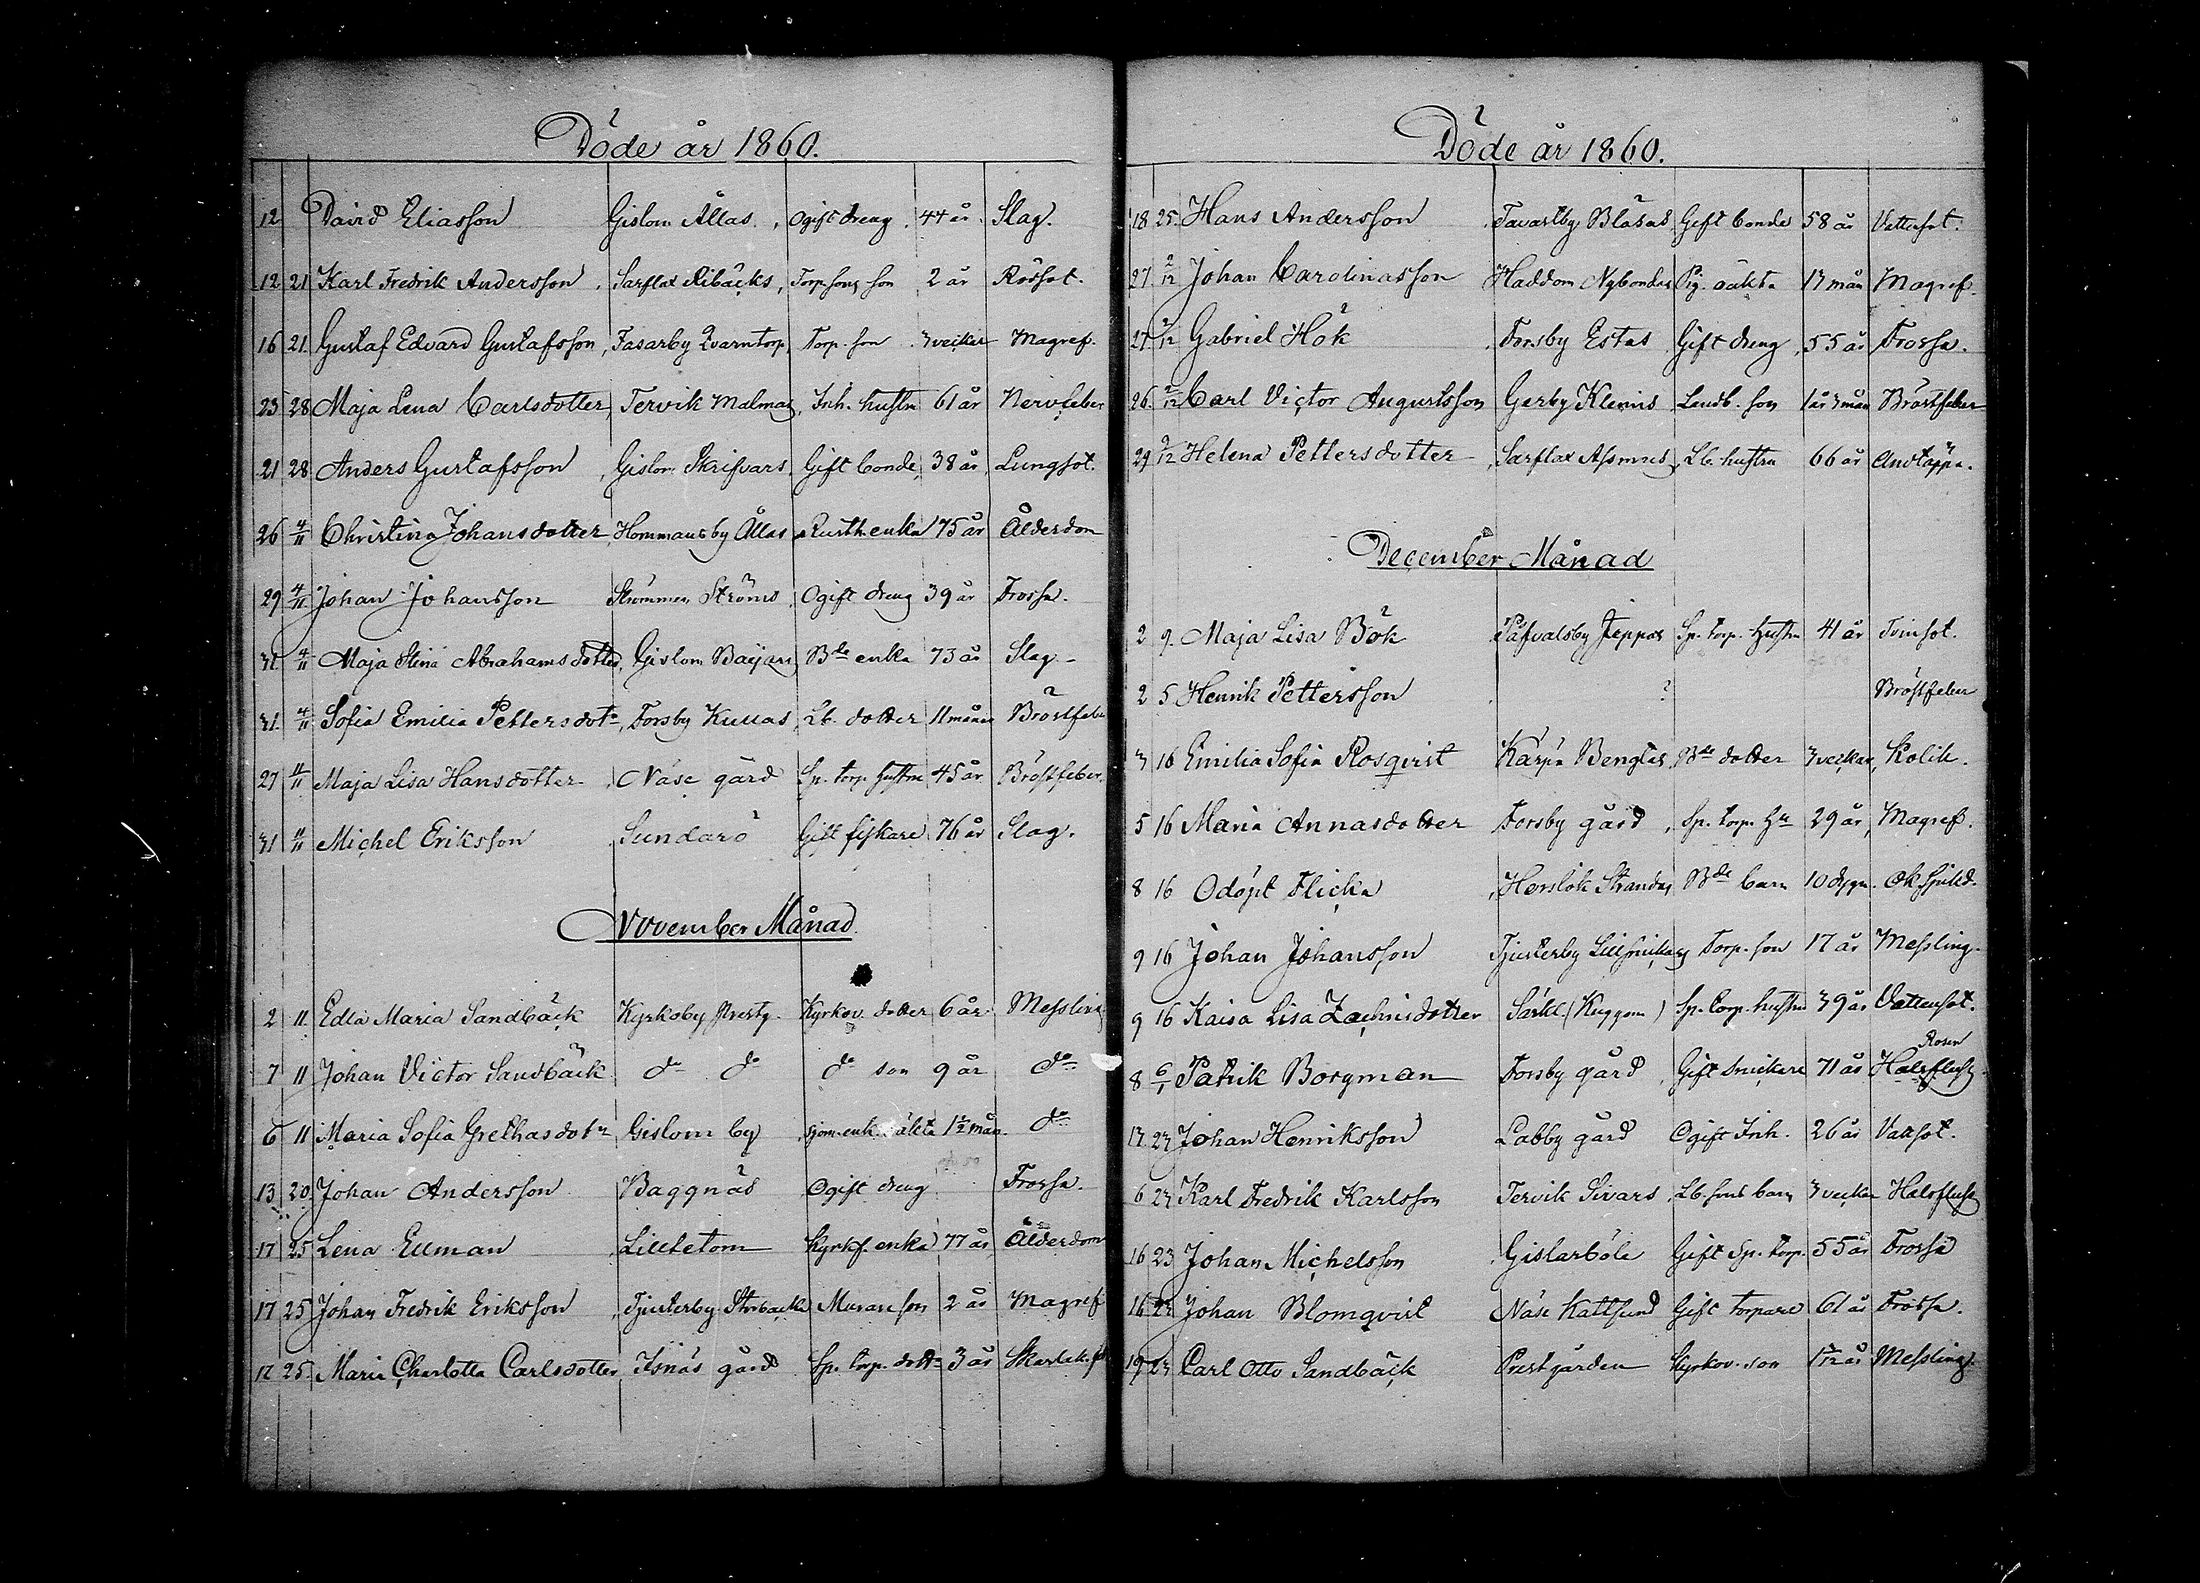 Döde år 1860.
12 David Eliasson Gislom Ållas Ogift dreng 44 år Slag.
12 21 Karl Fredrik Andersson Sarflax Ribäcks Torp. sons son 2 år Rödsot.
16 21 Gustaf Edvard Gustafsson Fasarby Qvarntorp Torp. son 3 veckor Magref.
23 28 Maja Lena Carlsdotter Tervik Malmas Inh. hustru 61 år Nervfeber
21 28 Anders Gustafsson Gislom Skrifvars Gift bonde 38 år Lungsot.
26 4/11 Christina Johansdotter Hommansby Ållas enka 75 år Ålderdom
29 4/11 Johan Johansson Strömmen Ströms Ogift dreng 39 år Frossa.
31 4/11 Maja Stina Abrahamsdotter Gislom Bayars Bde enka 73 år Slag
31 4/11 Sofia Emilia Pettersdotr Forsby Kullas Lb. dotter 11 månar Bröstfeber
27 11/11 Maja Lisa Hansdotter Näse gård Sp. torp. hustru 45 år Bröstfeber.
31 11/11 Michel Eriksson Sundarö Gift fiskare 76 år Slag.
November Månad
2 11 Edla Maria Sandbäck Kyrkoby Prestg. Kyrkov. dotter 6 år Messling
7 11 Johan Victor Sandbäck do do do son 9 år do
6 11 Maria Sofia Grethasdotr Gislom by enk. oäkta 1½ mån. do
13 20 Johan Andersson Baggnäs Ogift dreng Frossa.
17 25 Lena Ekman Lilletom Kyrkf. enka 77 år Ålderdom
17 25 Johan Fredrik Eriksson Tjusterby Storbacka Murare son 2 år Magref
12 25 Maria Charlotta Carlsdotter Isnäs gård Sp. torp. dottr 3 år Skarlak. fb
Döde år 1860.
18 25 Hans Andersson Tavastby Blåsas Gift bonde 58 år Vattusot.
27 2/12 Johan Carolinasson Haddom Nybondas Pig. oäkta 17 mån Magref.
27 2/12 Gabriel Hök Forsby Estas Gift dreng 55 år Frossa.
26 2/12 Carl Victor Augustsson Gerby Klemis Landb. son 1 år 3 mån Bröstfeber
29 9/12 Helena Pettersdotter Sarflax Assmus Lb. hustru 66 år Andtäppa.
December Månad
2 9 Maja Lisa Bök Påfvalsby Jeppas Sp. torp. hustru 41 år Tvinsot.
2 5 Henrik Pettersson ? Bröstfeber
3 16 Emilia Sofia Rosqvist Kärpä Bengtas Bde dotter 3 veckar Kolik.
5 16 Maria Annasdotter Forsby gård Sp. torp. Hu 29 år Magref.
8 16 Odöpt Flicka Hörslök Strandas Bde barn 10 dygn. Ok. sjukd.
9 16 Johan Johansson Tjusterby Lillsnickars Torp. son 17 år Messling.
9 16 Kaisa Lisa Zachrisdotter Särkl. (Kuggom) Sp. torp. hustru 39 år Vattensot.
8 6/1 Patrik Borgman Forsby gård Gift snickare 71 år Rosen Halsfluss
17 23 Johan Henriksson Labby gård Ogift Inh. 26 år Vattsot.
6 23 Karl Fredrik Karlsson Tervik Sivars Lb. sons barn 3 veckar Halsfluss
16 23 Johan Michelsson Gislarböle Gift Sp. torp. 55 år Frossa
16 23 Johan Blomqvist Näse Kattsund Gift torpare 61 år Frossa.
19 23 Carl Otto Sandbäck Prestgården Kyrkov. son 1 5/12 år Messling